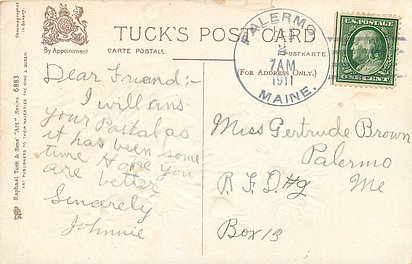 TUCK'S POST CARD
CARTE POSTALE.
POSTKARTE
(FOR ADDRESS ONLY.)
By Appointment
Raphael Tuck & Sons' "Art" Series 6883
ART PUBLISHERS TO THEIR MAJESTIES THE KING & QUEEN
PALERMO
7AM
1911
MAINE.
U.S. POSTAGE
ONE CENT
Dear Friend:-
I will ans
your Postal as
it has been some
time Hope you
are better
Sincerely
Johnnie
Miss Gertrude Brown
Palermo
R.F.D. #2 Me
Box 13